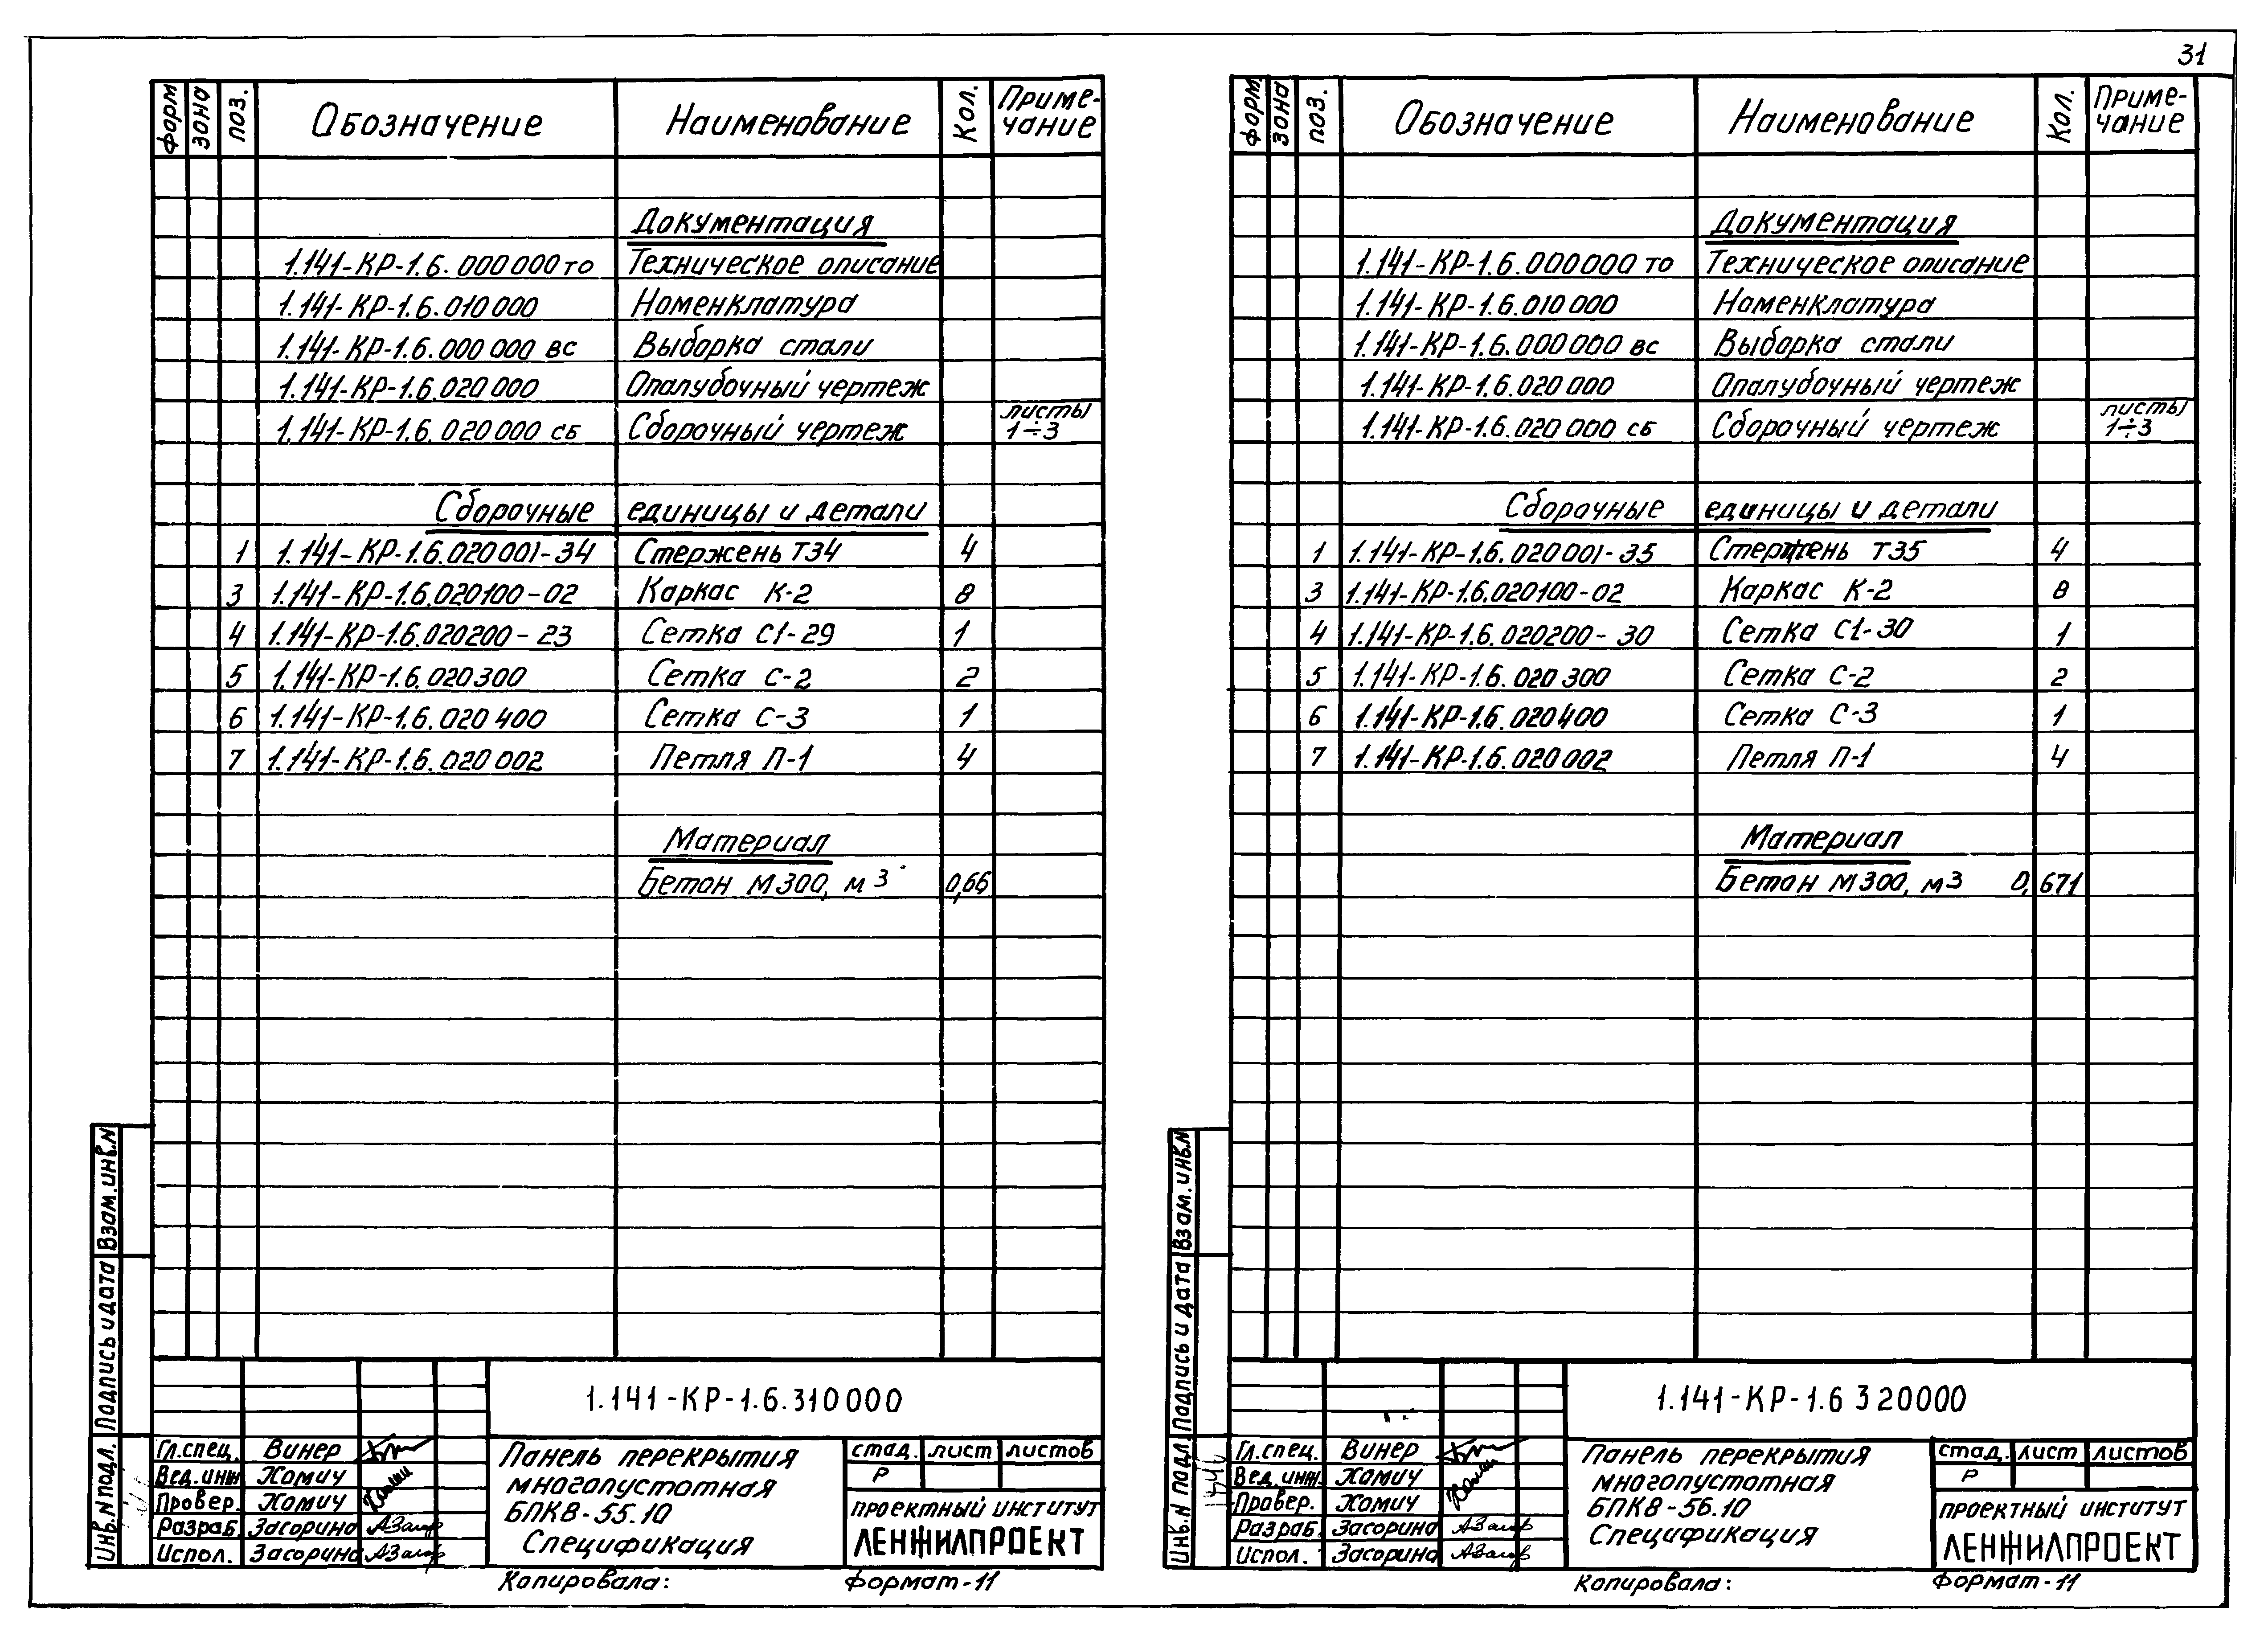 31
форм зона поз. Обозначение Наименование Кол. Приме-чание
Документация
1.141-КР-1.6.000000 то Техническое описание
1.141-КР-1.6.010 000 Номенклатура
1.141-КР-1.6.000 000 вс Выборка стали
1.141-КР-1.6.020 000 Опалубочный чертеж
1.141-КР-1.6.020 000 сб Сборочный чертеж листы 1÷3
Сборочные единицы и детали
1 1.141-КР-1.6.020001-34 Стержень Т34 4
3 1.141-КР-1.6.020100-02 Каркас К-2 8
4 1.141-КР-1.6.020200-23 Сетка С1-29 1
5 1.141-КР-1.6.020300 Сетка С-2 2
6 1.141-КР-1.6.020400 Сетка С-3 1
7 1.141-КР-1.6.020 002 Петля П-1 4
Материал
Бетон М300, м3 0,66
Взам. инв.N
Подпись и дата
Инв. N подл.
1.141-КР-1.6.310000
Гл.спец. Винер
Вед.инж Хомич
Провер. Хомич
Разраб. Засорина
Испол. Засорина
Панель перекрытия
многопустотная
БПК8-55.10
Спецификация
стад. лист листов
Р
ПРОЕКТНЫЙ ИНСТИТУТ
ЛЕНЖИЛПРОЕКТ
Копировала: Формат-11
форм. зона поз. Обозначение Наименование Кол. Приме-чание
Документация
1.141-КР-1.6.000000 то Техническое описание
1.141-КР-1.6.010 000 Номенклатура
1.141-КР-1.6.000000 вс Выборка стали
1.141-КР-1.6.020 000 Опалубочный чертеж
1.141-КР-1.6.020 000 сб Сборочный чертеж листы 1÷3
Сборочные единицы и детали
1 1.141-КР-1.6.020001-35 Стержень Т35 4
3 1.141-КР-1.6.020100-02 Каркас К-2 8
4 1.141-КР-1.6.020200-30 Сетка С1-30 1
5 1.141-КР-1.6.020 300 Сетка С-2 2
6 1.141-КР-1.6.020400 Сетка С-3 1
7 1.141-КР-1.6.020002 Петля П-1 4
Материал
Бетон М300, м3 0,671
Взам. инв.N
Подпись и дата
Инв. N подл.
1.141-КР-1.6 320000
Гл.спец. Винер
Вед.инж. Хомич
Провер. Хомич
Разраб. Засорина
Испол. Засорина
Панель перекрытия
многопустотная
БПК8-56.10
Спецификация
стад. лист листов
Р
ПРОЕКТНЫЙ ИНСТИТУТ
ЛЕНЖИЛПРОЕКТ
Копировала: Формат-11